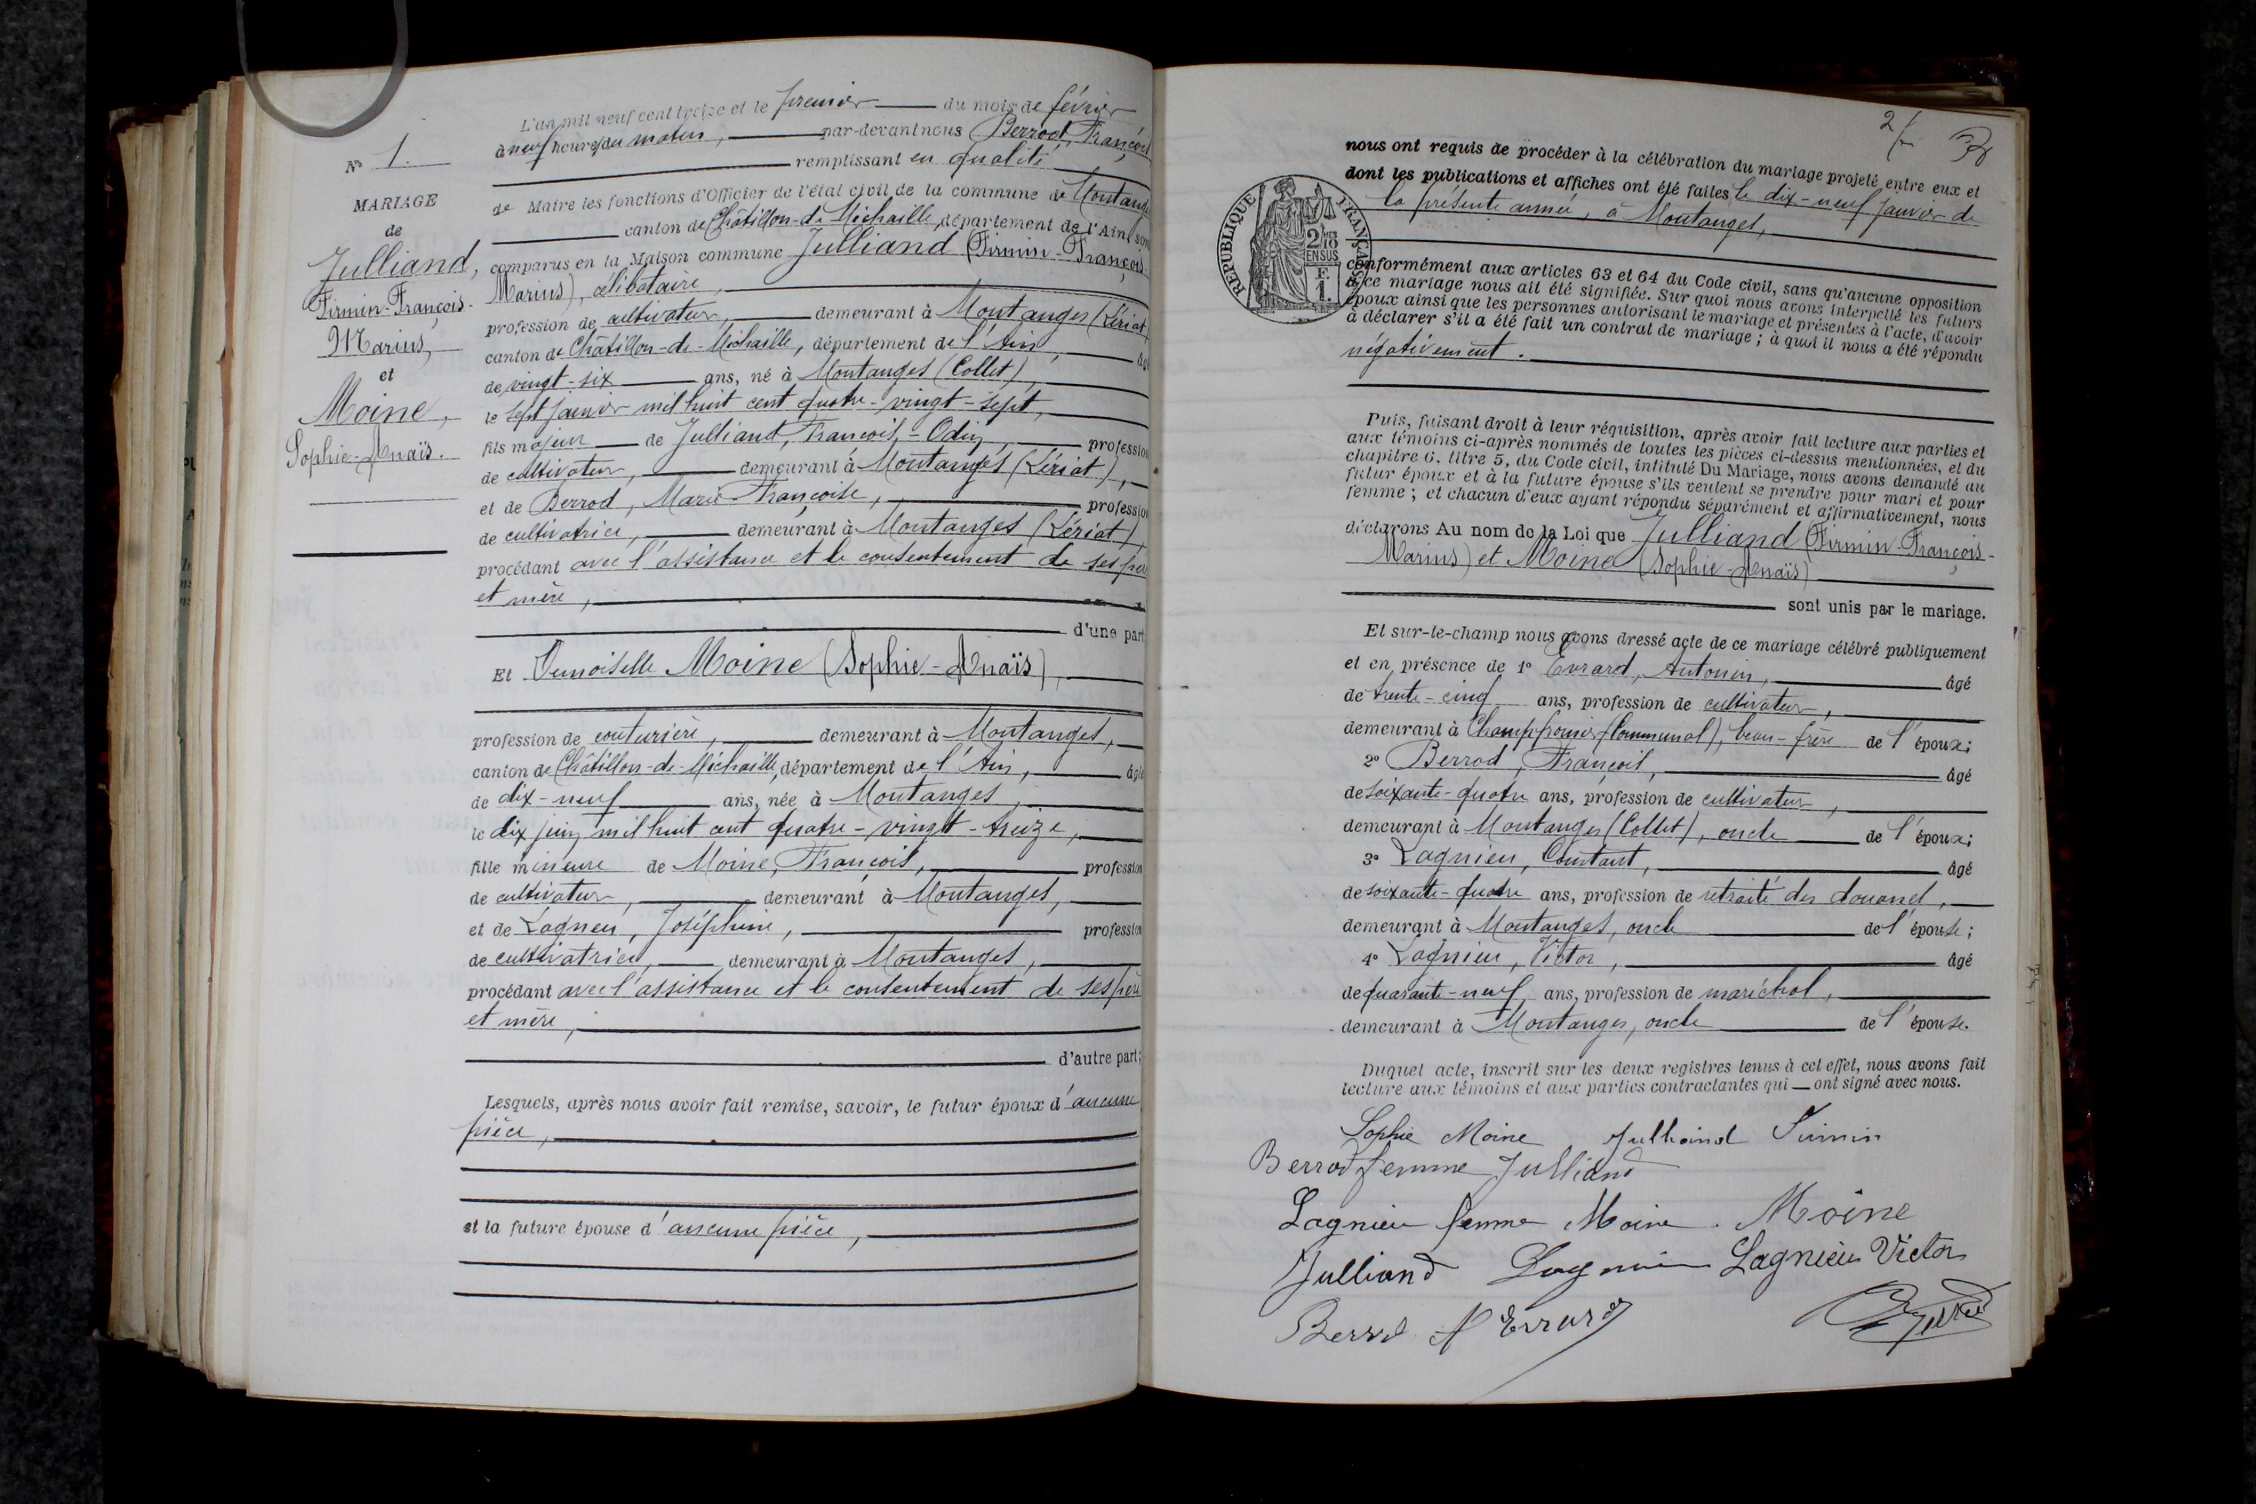 N° 1.
MARIAGE
de
Julliand,
Firmin-François-
Marius,
et
Moine,
Sophie-Anaïs.
L'an mil neuf cent treize et le premier du mois de février
à neuf heures du matin, par-devant nous Berrod, François
remplissant en qualité
de Maire les fonctions d'Officier de l'état civil de la commune de Montanges
canton de Châtillon-de-Michaille, département de l'Ain, sont
comparus en la Maison commune Julliand (Firmin-François-
Marius), célibataire,
profession de cultivateur, demeurant à Montanges (Lériat)
canton de Châtillon-de-Michaille, département de l'Ain, âgé
de vingt-six ans, né à Montanges (Collet),
le sept janvier mil huit cent quatre-vingt-sept,
fils majeur de Julliand, François-Odin, profession
de cultivateur, demeurant à Montanges (Lériat),
et de Berrod, Marie-Françoise, profession
de cultivatrice, demeurant à Montanges (Lériat),
procédant avec l'assistance et le consentement de ses père
et mère,
d'une part
Et Demoiselle Moine (Sophie-Anaïs),
profession de couturière, demeurant à Montanges,
canton de Châtillon-de-Michaille, département de l'Ain, âgée
de dix-neuf ans, née à Montanges,
le dix juin mil huit cent quatre-vingt-treize,
fille mineure de Moine, François, profession
de cultivateur, demeurant à Montanges,
et de Lagnieu, Joséphine, profession
de cultivatrice, demeurant à Montanges,
procédant avec l'assistance et le consentement de ses père
et mère,
d'autre part;
Lesquels, après nous avoir fait remise, savoir, le futur époux d'aucune
pièce,
et la future épouse d'aucune pièce,
2/
nous ont requis de procéder à la célébration du mariage projeté entre eux et
dont les publications et affiches ont été faites le dix-neuf janvier de
la présente année, à Montanges,
RÉPUBLIQUE FRANÇAISE
2/10 EN SUS
F.
1.
conformément aux articles 63 et 64 du Code civil, sans qu'aucune opposition
à ce mariage nous ait été signifiée. Sur quoi nous avons interpellé les futurs
époux ainsi que les personnes autorisant le mariage et présentes à l'acte, d'avoir
à déclarer s'il a été fait un contrat de mariage; à quoi il nous a été répondu
négativement.
Puis, faisant droit à leur réquisition, après avoir fait lecture aux parties et
aux témoins ci-après nommés de toutes les pièces ci-dessus mentionnées, et du
chapitre 6, titre 5, du Code civil, intitulé Du Mariage, nous avons demandé au
futur époux et à la future épouse s'ils veulent se prendre pour mari et pour
femme; et chacun d'eux ayant répondu séparément et affirmativement, nous
déclarons Au nom de la Loi que Julliand (Firmin-François-
Marius) et Moine (Sophie-Anaïs)
sont unis par le mariage.
Et sur-le-champ nous avons dressé acte de ce mariage célébré publiquement
et en présence de 1° Evrard, Antonin, âgé
de trente-cinq ans, profession de cultivateur,
demeurant à Champfromier (Communal), beau-frère de l'époux;
2° Berrod, François, âgé
de soixante-quatre ans, profession de cultivateur,
demeurant à Montanges (Collet), oncle de l'époux;
3° Lagnieu, Constant, âgé
de soixante-quatre ans, profession de retraité des douanes,
demeurant à Montanges, oncle de l'épouse;
4° Lagnieu, Victor, âgé
de quarante-neuf ans, profession de maréchal,
demeurant à Montanges, oncle de l'épouse.
Duquel acte, inscrit sur les deux registres tenus à cet effet, nous avons fait
lecture aux témoins et aux parties contractantes qui ont signé avec nous.
Sophie Moine Julliand Firmin
Berrod femme Julliand
Lagnieu femme Moine. Moine
Julliand Lagnieu Lagnieu Victor
Berrod A Evrard